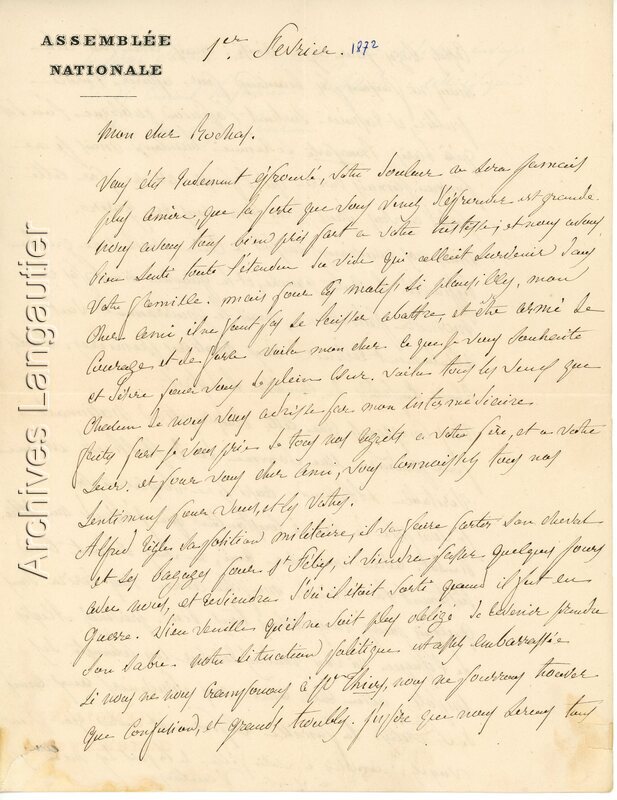 ASSEMBLÉE
NATIONALE
1er Fevrier. 1872
Mon cher Rochas.
Vous êtes rudement éprouvé, votre douleur ne sera jamais
plus amère, que la perte que vous venez d'éprouver est grande
nous avons tous bien pris part a votre tristesse; et nous avons
bien senti toute l'étendue du vide qui allait survenir dans
votre famille. mais pour des motifs si plausibles, mon
cher ami, il ne faut pas se laisser abattre, et être armé de
courage et de force voila mon cher ce que je vous souhaite
et désire pour vous de plein coeur. voila tous les voeux que
chacun de nous vous adresse par mon intermédiaire
faites part je vous prie de tous nos regrets a votre père, et a votre
soeur. et pour vous cher ami, vous connaissez tous nos
sentimens pour vous, et les votres.
Alfred règle sa position militaire, il va faire partir son cheval
et ses bagages pour St Félix, il viendra passer quelques jours
avec nous, et reviendra d'où il était sorti quand il fut en
guerre. Dieu veuille qu'il ne soit plus obligé de revenir prendre
son sabre. notre situation politique est assez embarrassée
si nous ne nous cramponons à Mr Thiers, nous ne pourrons trouver
que confusion, et grands troubles. j'espère que nous serons tous
Archives Langautier